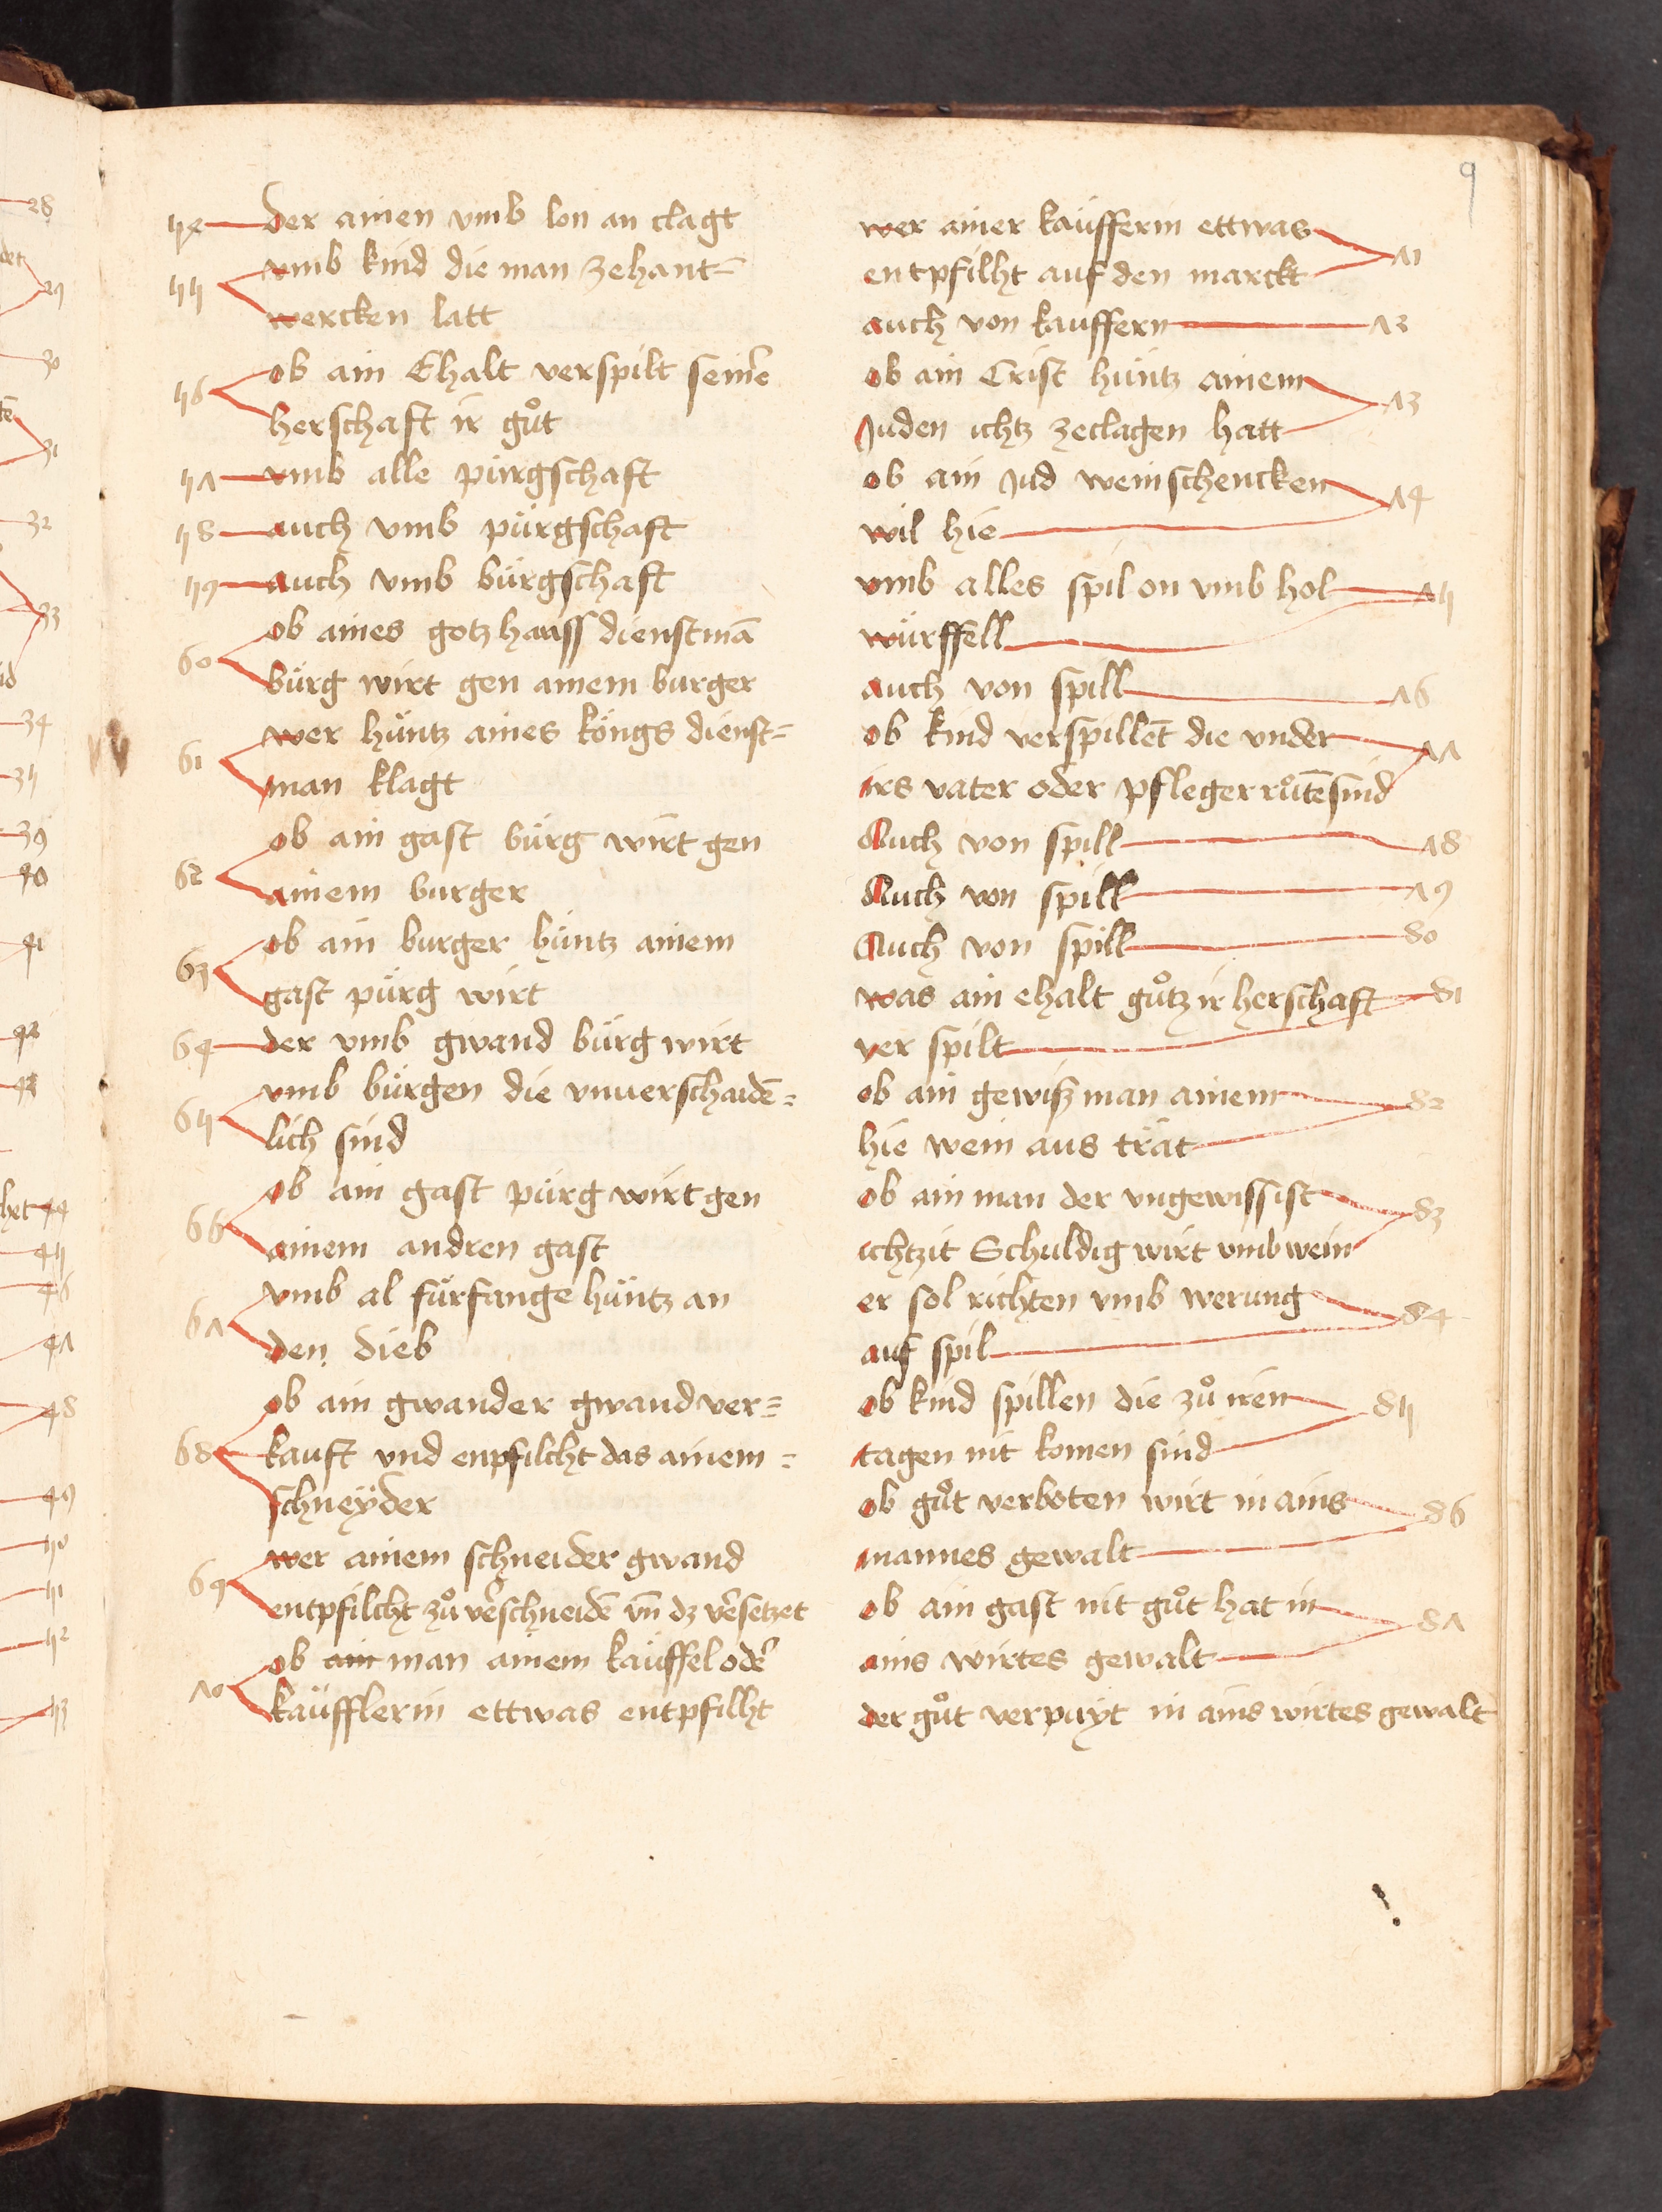 9
54 der ainen vmb lon an clagt
55 vmb kind die man zehant=
wercken latt
56 ob ain Ehalt verspilt seinr̄e
herschaft ir gůt
57 vmb alle pürgschaft
58 auch vmb pürgschaft
59 auch vmb bürgschaft
60 ob aines gotzhauss dienstmā
bürg wirt gen ainem burger
61 wer hüntz aines köngs dienst=
man klagt
62 ob ain gast bürg wirt gen
ainem burger
63 ob ain burger hüntz ainem
gast pürg wirt
64 der vmb gwand bürg wirt
65 vmb bürgen die vnuerschaidē=
lich sind
66 ob ain gast pürg wirt gen
ainem andren gast
67 vmb al fürfange hüntz an
den dieb
68 ob ain gwander gwand ver=
kauft vnd enpfilcht das ainem=
schneyder
69 wer ainem schneider gwand
entpfilcht zů v̄erschneidē vn̄ dz v̄ersetzet
70 ob ain man ainem käuffel oder
käufflerin ettwas entpfilht
wer ainer käufferin ettwas 71
entpfilht auf den marckt
auch von kauffern 72
ob ain Crist hüntz ainem 73
Juden ichtz zeclagen hatt
ob ain Jud weinschencken 74
wil hie
vmb alles spil on vmb hol 75
würffell
auch von spill 76
ob kind verspillēt die vnder 77
irs vater oder pfleger růtē sind
Auch von spill 78
Auch von spill 79
Auch von spill 80
was ain ehalt gůtz ir herschaft 81
ver spilt
ob ain gewisz man ainem 82
hie wein aus trät
ob ain man der vngewiss ist 83
ichtzit Schuldig wirt vmb wein
er sol richten vmb werung 84
auf spil
ob kind spillen die zů iren 85
tagen nit komen sind
ob gůt verboten wirt in ains 86
mannes gewalt
ob ain gast nit gůt hat in 87
ains wirtes gewalt
der gůt verpuyt in ains wirtes gewalt